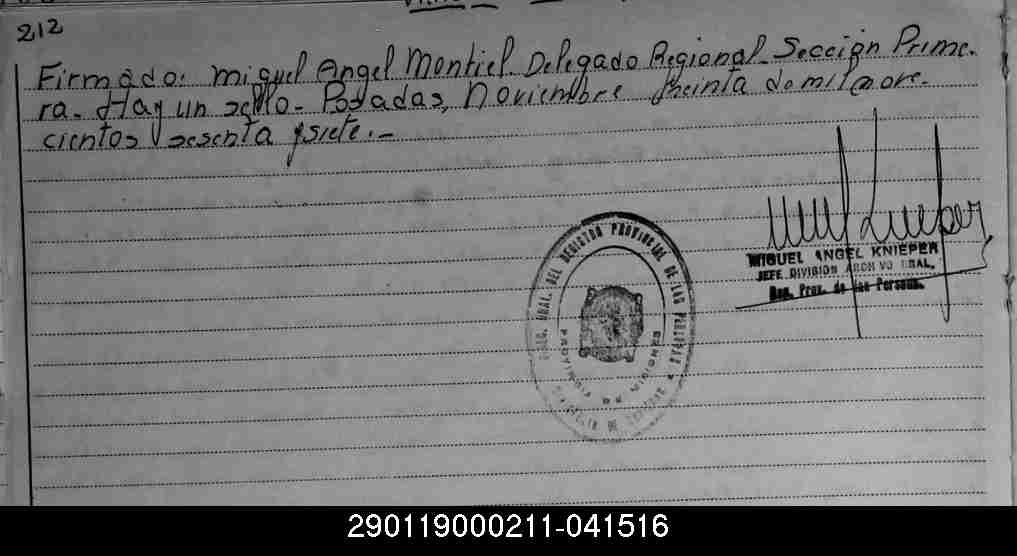 212
Firmado: Miguel Angel Montiel. Delegado Regional Sección Prime-
ra. Hay un sello. Posadas, Noviembre treinta de mil nove-
cientos sesenta y siete.-
MIGUEL ANGEL KNIEPER
JEFE DIVISION ARCHIVO GRAL.
Reg. Prov. de las Personas
DIREC. GRAL. DEL REGISTRO PROVINCIAL DE LAS PERSONAS
PROVINCIA DE MISIONES
290119000211-041516